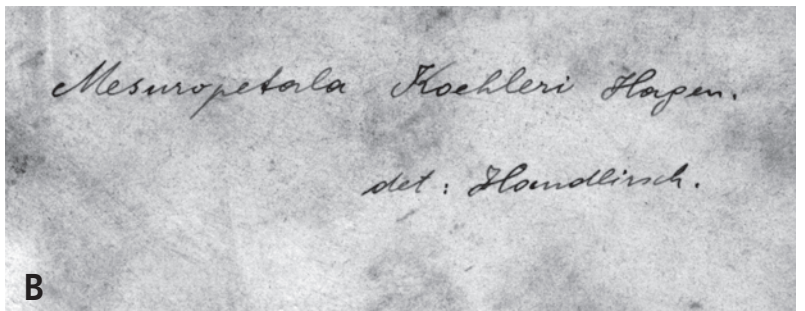 Mesuropetala Koehleri Hagen.
det: Handlirsch.
B